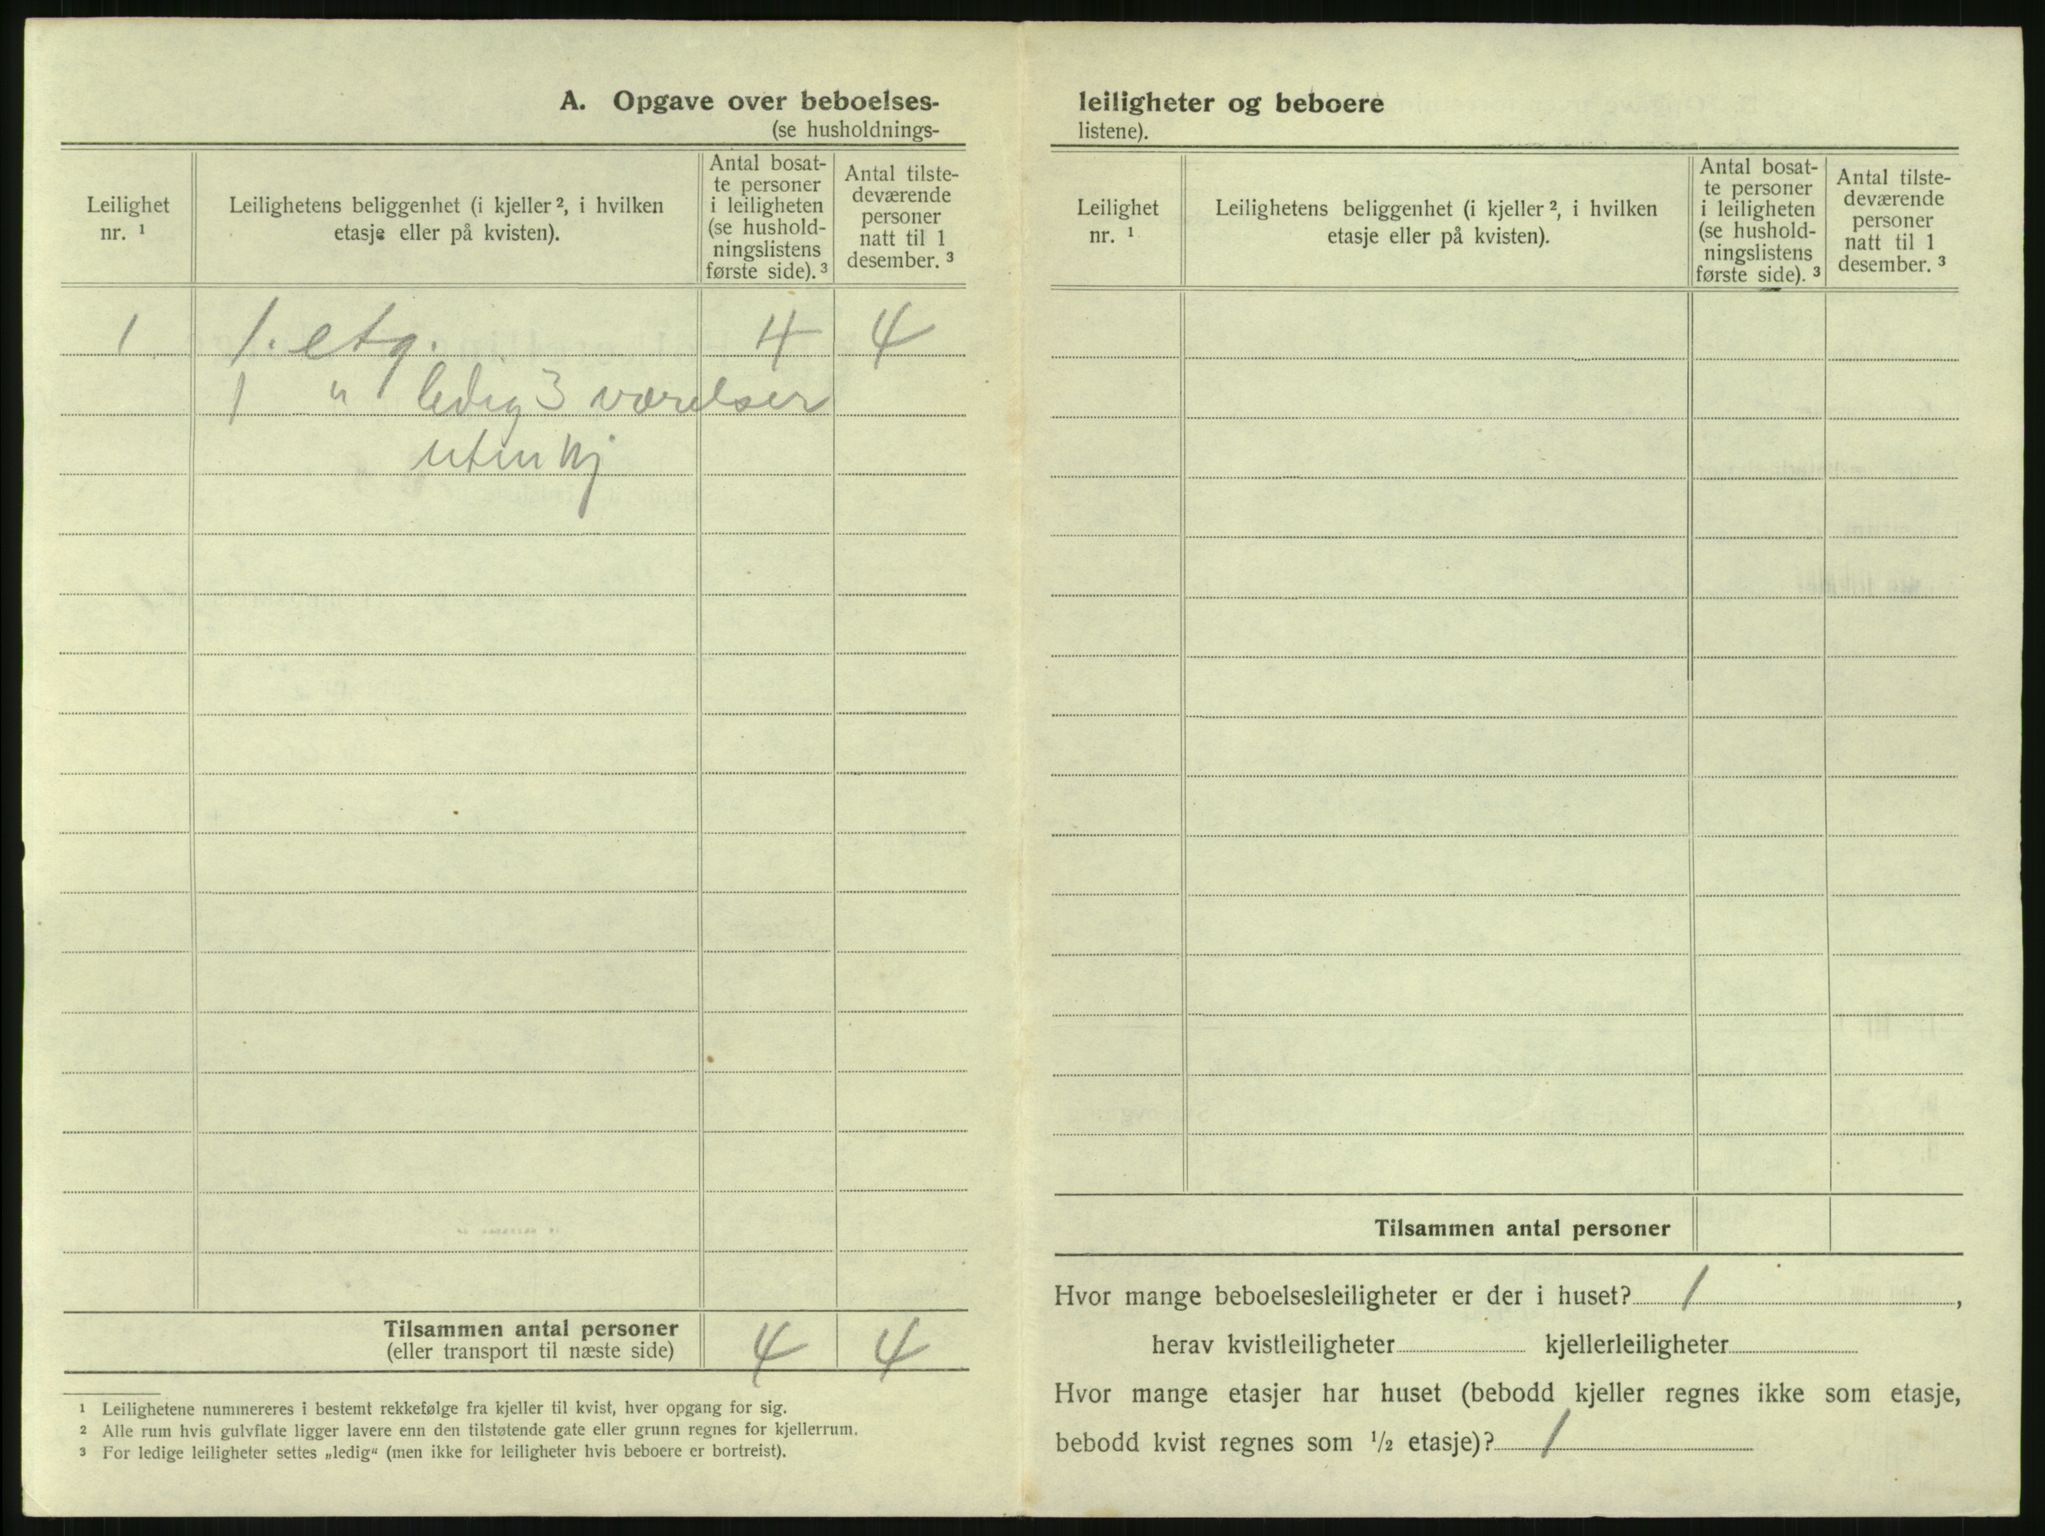 A. Opgave over beboelses-
(se husholdnings-
Leilighet
nr. ¹
Leilighetens beliggenhet (i kjeller ², i hvilken
etasje eller på kvisten).
Antal bosat-
te personer
i leiligheten
(se hushold-
ningslistens
første side). ³
Antal tilste-
deværende
personer
natt til 1
desember. ³
1 1. etg. 4 4
1 " ledig 3 værelser
uten kj
Tilsammen antal personer 4 4
(eller transport til næste side)
¹ Leilighetene nummereres i bestemt rekkefølge fra kjeller til kvist, hver opgang for sig.
² Alle rum hvis gulvflate ligger lavere enn den tilstøtende gate eller grunn regnes for kjellerrum.
³ For ledige leiligheter settes „ledig“ (men ikke for leiligheter hvis beboere er bortreist).
leiligheter og beboere
listene).
Leilighet
nr. ¹
Leilighetens beliggenhet (i kjeller ², i hvilken
etasje eller på kvisten).
Antal bosat-
te personer
i leiligheten
(se hushold-
ningslistens
første side). ³
Antal tilste-
deværende
personer
natt til 1
desember. ³
Tilsammen antal personer
Hvor mange beboelsesleiligheter er der i huset? 1,
herav kvistleiligheter kjellerleiligheter
Hvor mange etasjer har huset (bebodd kjeller regnes ikke som etasje,
bebodd kvist regnes som ½ etasje)? 1